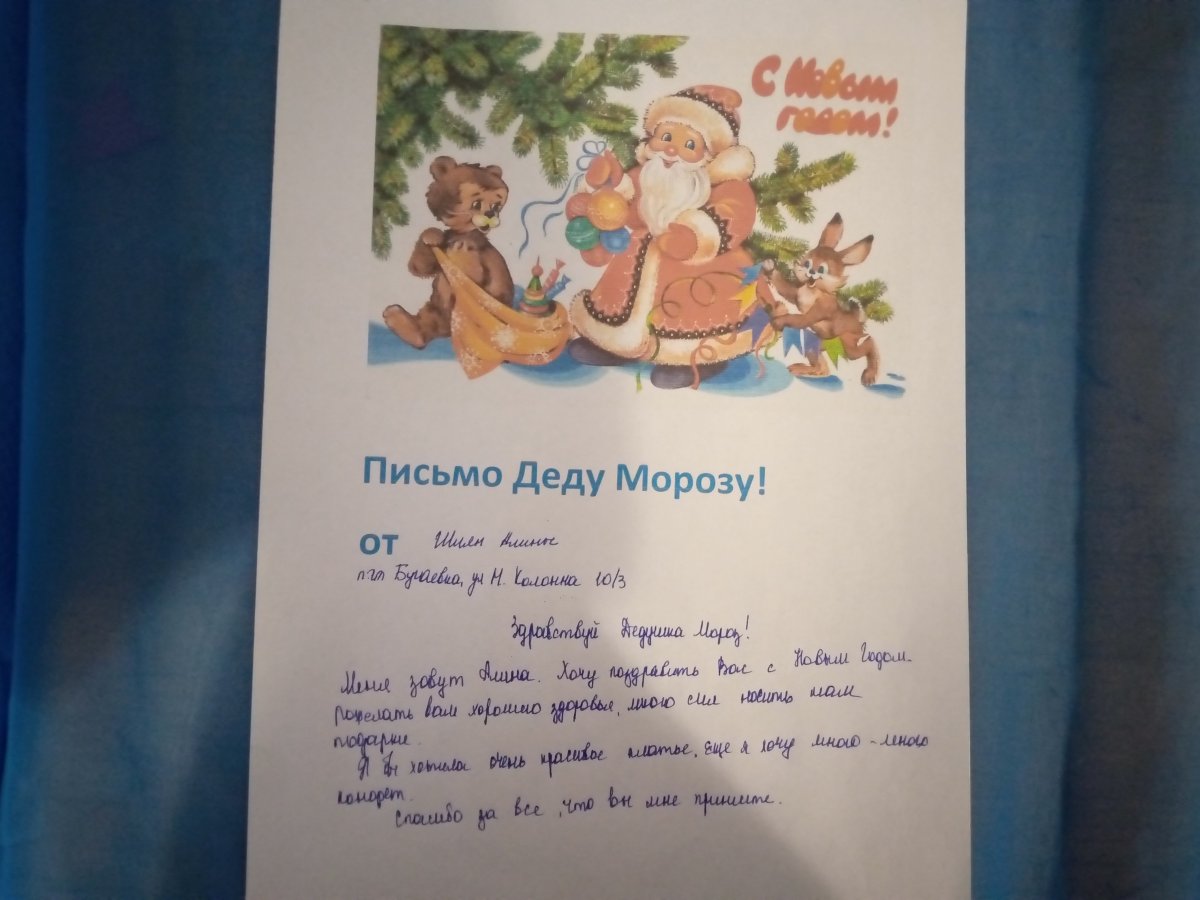 С Новым
годом!
Письмо Деду Морозу!
от Шилн Алины
пгт Бугаевка, ул М. Колонна 10/3
Здравствуй Дедушка Мороз!
Меня зовут Алина. Хочу поздравить Вас с Новым Годом.
Пожелать вам хорошего здоровья, много сил носить нам
подарки.
Я бы хотела очень красивое платье. Еще я хочу много-много
конфет.
Спасибо за все, что вы мне принесёте.